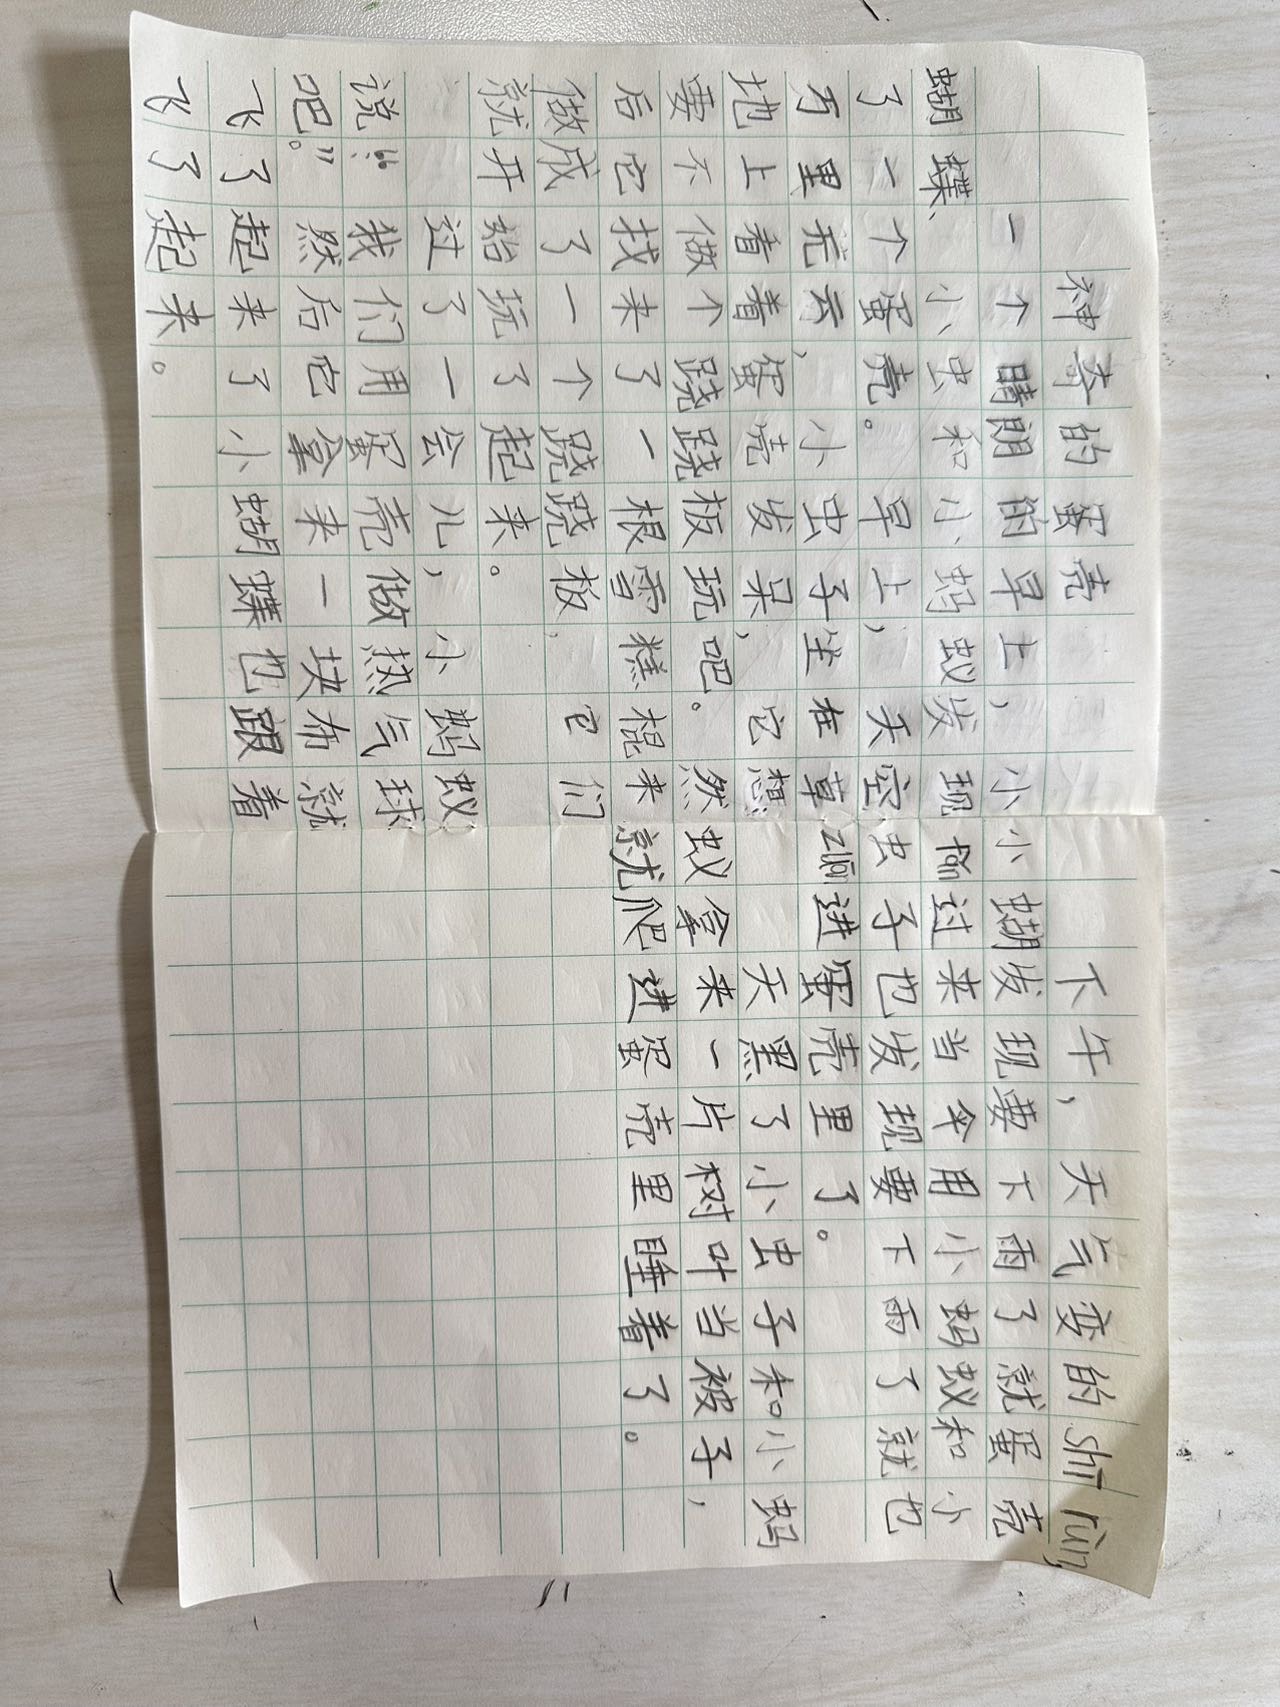 神奇的蛋壳
一个晴朗的早上，小
蝴蝶、小虫和小蚂蚁发现
了一个蛋壳。早上，天空
万里无云，小虫子坐在草
地上看着蛋壳发呆，它想
要不做个跷跷板玩吧。然
后它找来了一根雪糕棍来
做成了一个跷跷板，它们
就开始玩了起来。
过了一会儿，小蚂蚁
说：“我们用蛋壳做热气球
吧。”然后它拿来一块布就
飞了起来了小蝴蝶也跟着
飞了起来。
下午，天气变的shī rùn,
小蝴发现要下雨了就蛋壳
fān过来当伞用小蚂蚁和小
虫子也发现要下雨了就也
zuān进蛋壳里了。
天黑了小虫子和小蚂
蚁拿来一片树叶当被子，
就爬进蛋壳里睡着了。